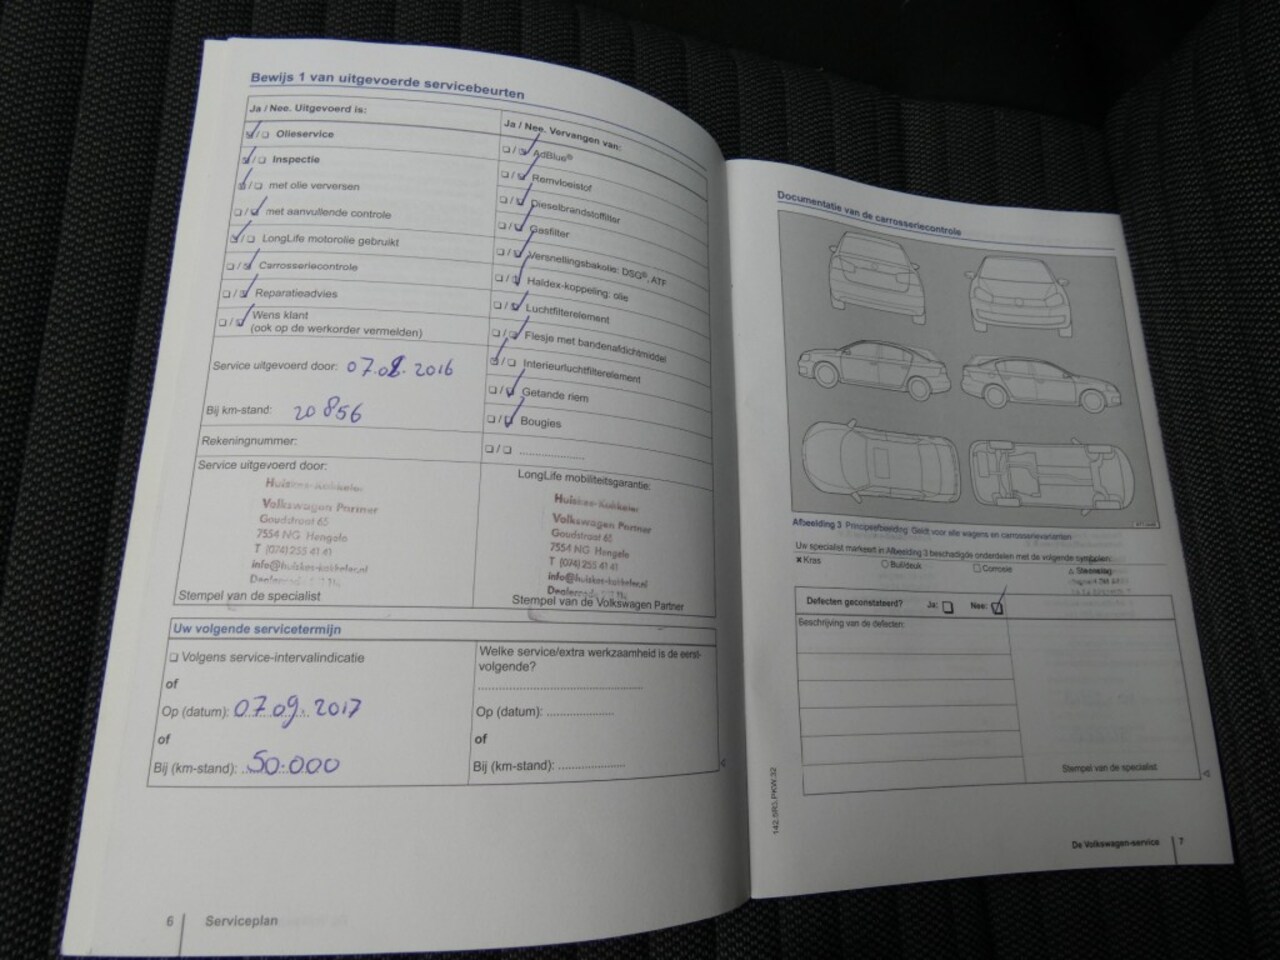 Bewijs 1 van uitgevoerde servicebeurten
Ja / Nee. Uitgevoerd is:
Olieservice
Inspectie
met olie verversen
met aanvullende controle
LongLife motorolie gebruikt
Carrosseriecontrole
Reparatieadvies
Wens klant
(ook op de werkorder vermelden)
Service uitgevoerd door: 07.08.2016
Bij km-stand: 20856
Rekeningnummer:
Service uitgevoerd door:
Volkswagen Partner
Goudstraat 65
7554 NG Hengelo
T (074) 255 41 41
Stempel van de specialist
Ja / Nee. Vervangen van:
AdBlue®
Remvloeistof
Dieselbrandstoffilter
Gasfilter
Versnellingsbakolie: DSG®, ATF
Haldex-koppeling: olie
Luchtfilterelement
Flesje met bandenafdichtmiddel
Interieurluchtfilterelement
Getande riem
Bougies
LongLife mobiliteitsgarantie:
Volkswagen Partner
Goudstraat 65
7554 NG Hengelo
T (074) 255 41 41
Stempel van de Volkswagen Partner
Uw volgende servicetermijn
Volgens service-intervalindicatie
of
Op (datum): 07.09.2017
of
Bij (km-stand): 50.000
Welke service/extra werkzaamheid is de eerst-
volgende?
Op (datum):
of
Bij (km-stand):
6 Serviceplan
Documentatie van de carrosseriecontrole
Afbeelding 3 Principeafbeelding: Geldt voor alle wagens en carrosserievarianten
Uw specialist markeert in Afbeelding 3 beschadigde onderdelen met de volgende symbolen:
Kras Buil/deuk Corrosie Steenslag
Defecten geconstateerd? Ja: Nee:
Beschrijving van de defecten:
Stempel van de specialist
142.5R3.PKW.32
De Volkswagen-service 7